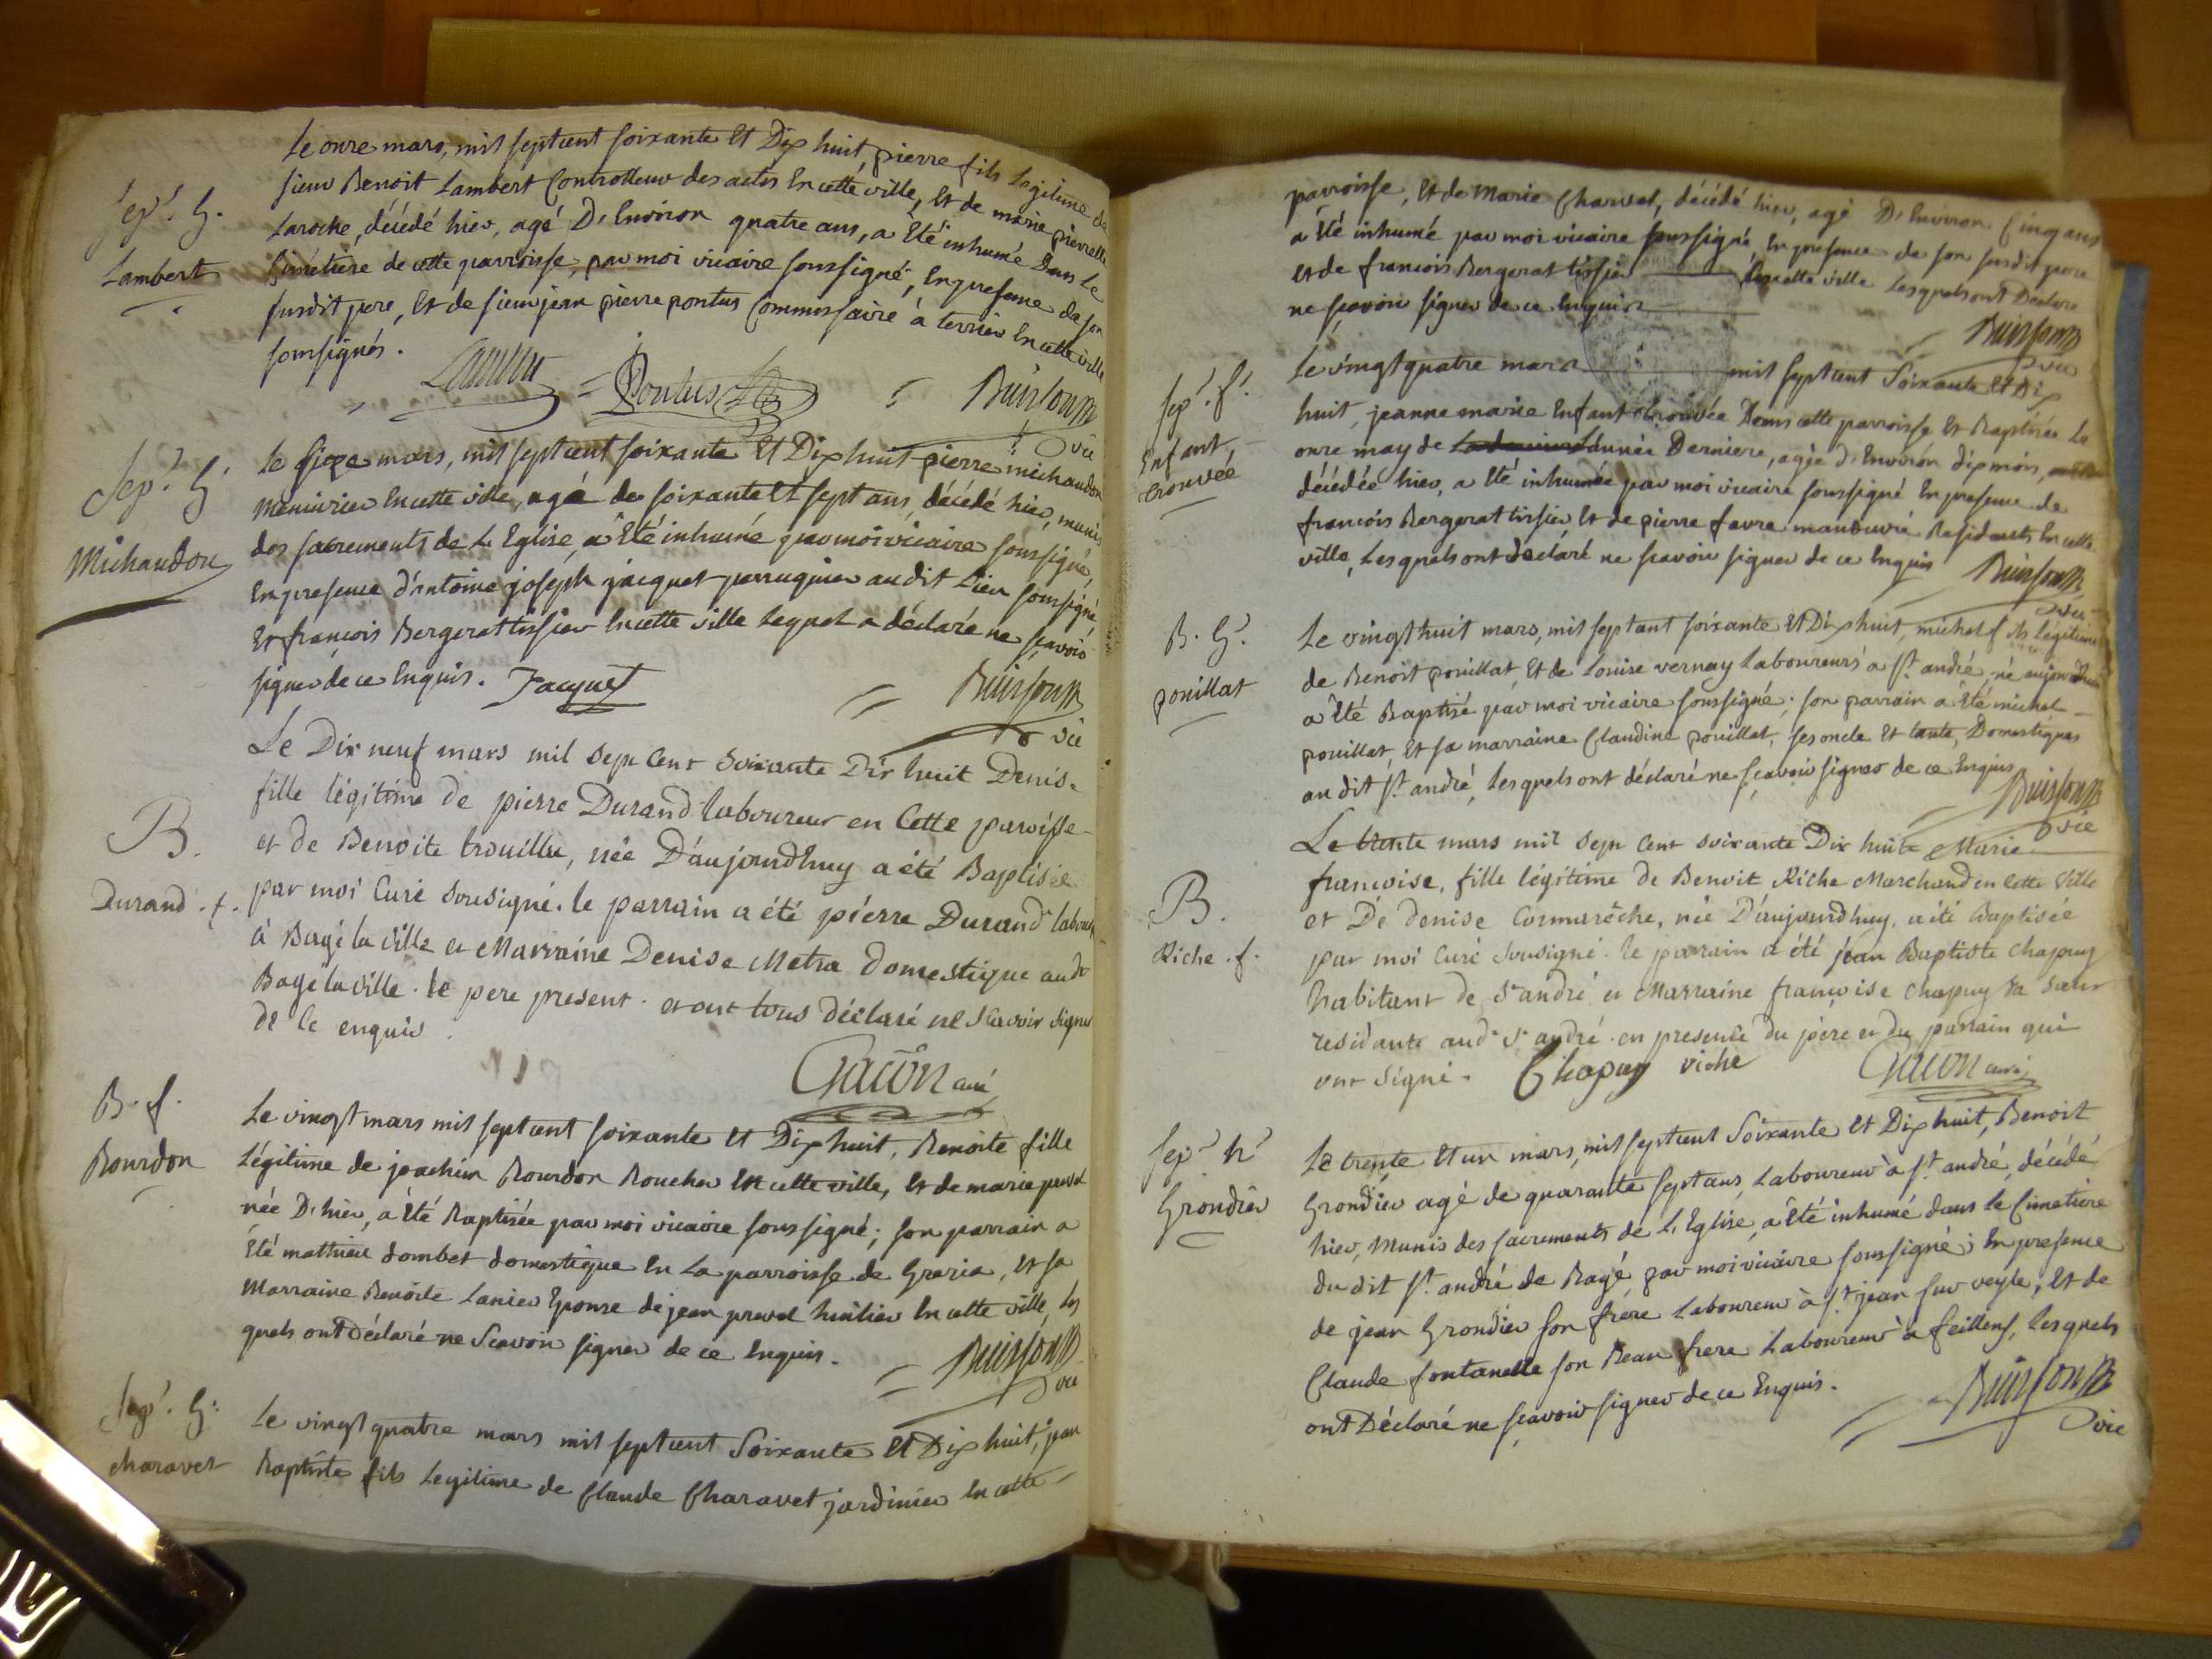 Sep.' G.
Lambert
Le onze mars, mil septcent soixante et Dix huit, pierre fils Legitime de
sieur Benoit Lambert Controlleur des actes en cette ville, et de marie pierrette
Laroche, décédé hier, agé D'Environ quatre ans, a Eté inhumé Dans Le
Simétiere de cette parroisse, par moi vicaire soussigné, En presence de son
susdit pere, et de sieur jean pierre pontus Commissaire à terrier En cette ville
soussignés.
Lambert = Pontus = Buisson
vic
Sep.' G.'
Michaudon
Le seize mars, mil septcent soixante et Dix huit pierre michaudon
menuirier En cette ville, agé de soixante et sept ans, décédé hier, munis
des sacrements de L'Eglise, a Eté inhumé par moi vicaire soussigné,
En presence d'antoine joseph jacquet perruquier audit Lieu soussigné,
Et françois Bergerat tissier En cette ville lequel a déclaré ne sçavoir
signer de ce Enquis. Jacquet = Buisson
vic
B.
Durand . f.
Le Dix neuf mars mil sept Cent soixante Dix huit Denise
fille légitime de pierre Durand laboureur en Cette paroisse
et de Benoite trouillu, née D'aujourdhuy a été Baptisée
par moi Curé sousigné. le parrain a été pierre Durand labour
à Bagé la ville et Marraine Denise Metra domestique aud
Bagé la ville. le pere present. et ont tous déclaré ne scavoir signer
de Ce enquis.
Gacon curé
B. f.
Bourdon
Le vingt mars mil septcent soixante et Dix huit, Benoite fille
Légitime de joachim Bourdon Boucher En cette ville, et de marie
née D'hier, a Eté Baptisée par moi vicaire soussigné; son parrain a
Eté mathieu dombet domestique En La parroisse de Grezia, et sa
Marraine Benoite Lanier Epouse de jean huilier En cette ville, les
quels ont Déclaré ne Scavoir signer de ce Enquis.
= Buisson
vic
Sep.' G.'
charavet
Le vingt quatre mars mil septcent Soixante et Dix huit, jean
Baptiste fils Legitime de Claude Charavet jardinier En cette
parroisse, et de Marie Charvet, décédé hier, agé D'Environ Cinq ans
a Eté inhumé par moi vicaire soussigné, En presence de son susdit pere
et de françois Bergerat tissier En cette ville Lesquels ont Déclaré
ne sçavoir signer de ce Enquis
Buisson
vic
Sep.' f.'
Enfant
trouvée
Le vingt quatre mars mil septcent Soixante et Dix
huit, jeanne marie Enfant trouvée Dans cette parroisse et Baptisée Le
onze may de L'année Derniere, agée d'Environ dix mois,
décédée hier, a Eté inhumée par moi vicaire soussigné En presence de
françois Bergerat tissier et de pierre favre manouvrié Residants En cette
ville, Lesquels ont declaré ne scavoir signer de ce Enquis
Buisson
vic
B. G.'
pouillat
Le vingt huit mars, mil septcent soixante et Dix huit, michel fils légitime
de Benoit pouillat, Et de Louise vernay Laboureurs a St. andré, né aujourdhui
a Eté Baptisé par moi vicaire soussigné; son parrain a Eté michel
pouillat, Et sa marraine Claudine pouillat, ses oncle Et tante, Domestiques
au dit St. andré, Lesquels ont déclaré ne sçavoir signer de ce Enquis
Buisson
vic
B.
Riche . f.
Le trente mars mil sept Cent soixante Dix huit Marie
francoise, fille légitime de Benoit Riche Marchand en Cette Ville
et De denise Cormarêche, née D'aujourdhuy, a été Baptisée
par moi Curé sousigné. le parrain a été jean Baptiste Chapuy
habitant de St andré et Marraine françoise Chapuy sa sœur
residante aud. St andré. en presence du père et du parrain qui
ont signé. Chapuy riche
Gacon curé
Sep.' h.'
Grondier
Le trente et un mars, mil septcent Soixante et Dix huit, Benoit
Grondier agé de quarante sept ans, Laboureur à St. andré, décédé
hier, Munis des sacrements de L'Eglise, a Eté inhumé dans le Cimetiere
du dit St. andré de Bagé par moi vicaire soussigné; En presence
de jean Grondier son frere Laboureur à St. jean sur veyle, Et de
Claude fontanelle son Beau frere Laboureur a feillens, Lesquels
ont Déclaré ne sçavoir signer de ce Enquis.
= Buisson
vic